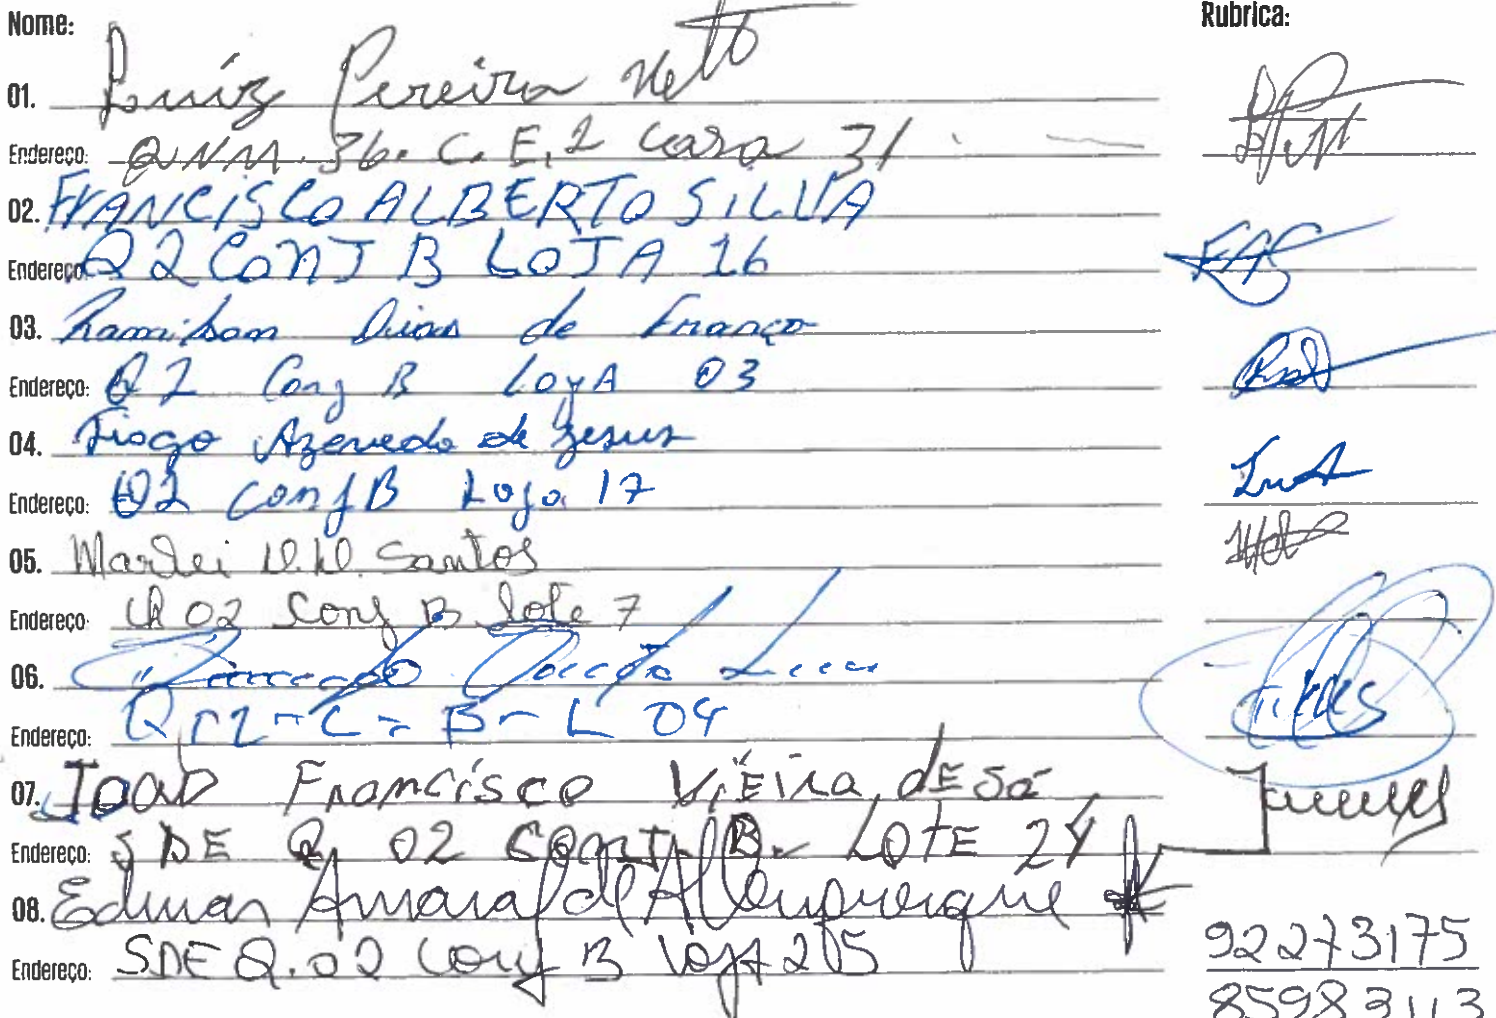 Nome: Rubrica:
01. Luíz Pereira Netto
Endereço: QNM. 36. C. E, 2 casa 31
02. FRANCISCO ALBERTO SILVA
Endereço: Q 2 CONJ B LOJA 16
FAS
03. Ramilson Dias de França
Endereço: Q 2 Conj B LOJA 03
04. Tiago Azevedo de Jesus
Endereço: Q2 conj B Loja 17
05. Marlei Santos
Endereço: 02 Conj B Lote 7
06.
Endereço: Q 02 - C - B - L 04
07. JOAO Francisco Vieira de Sá
Endereço: SDE Q 02 CONJ. B. LOTE 24
08. Edmar Amaral de Albuquerque
92273175
Endereço: SDE Q. 02 Conj B loja 25
85983113